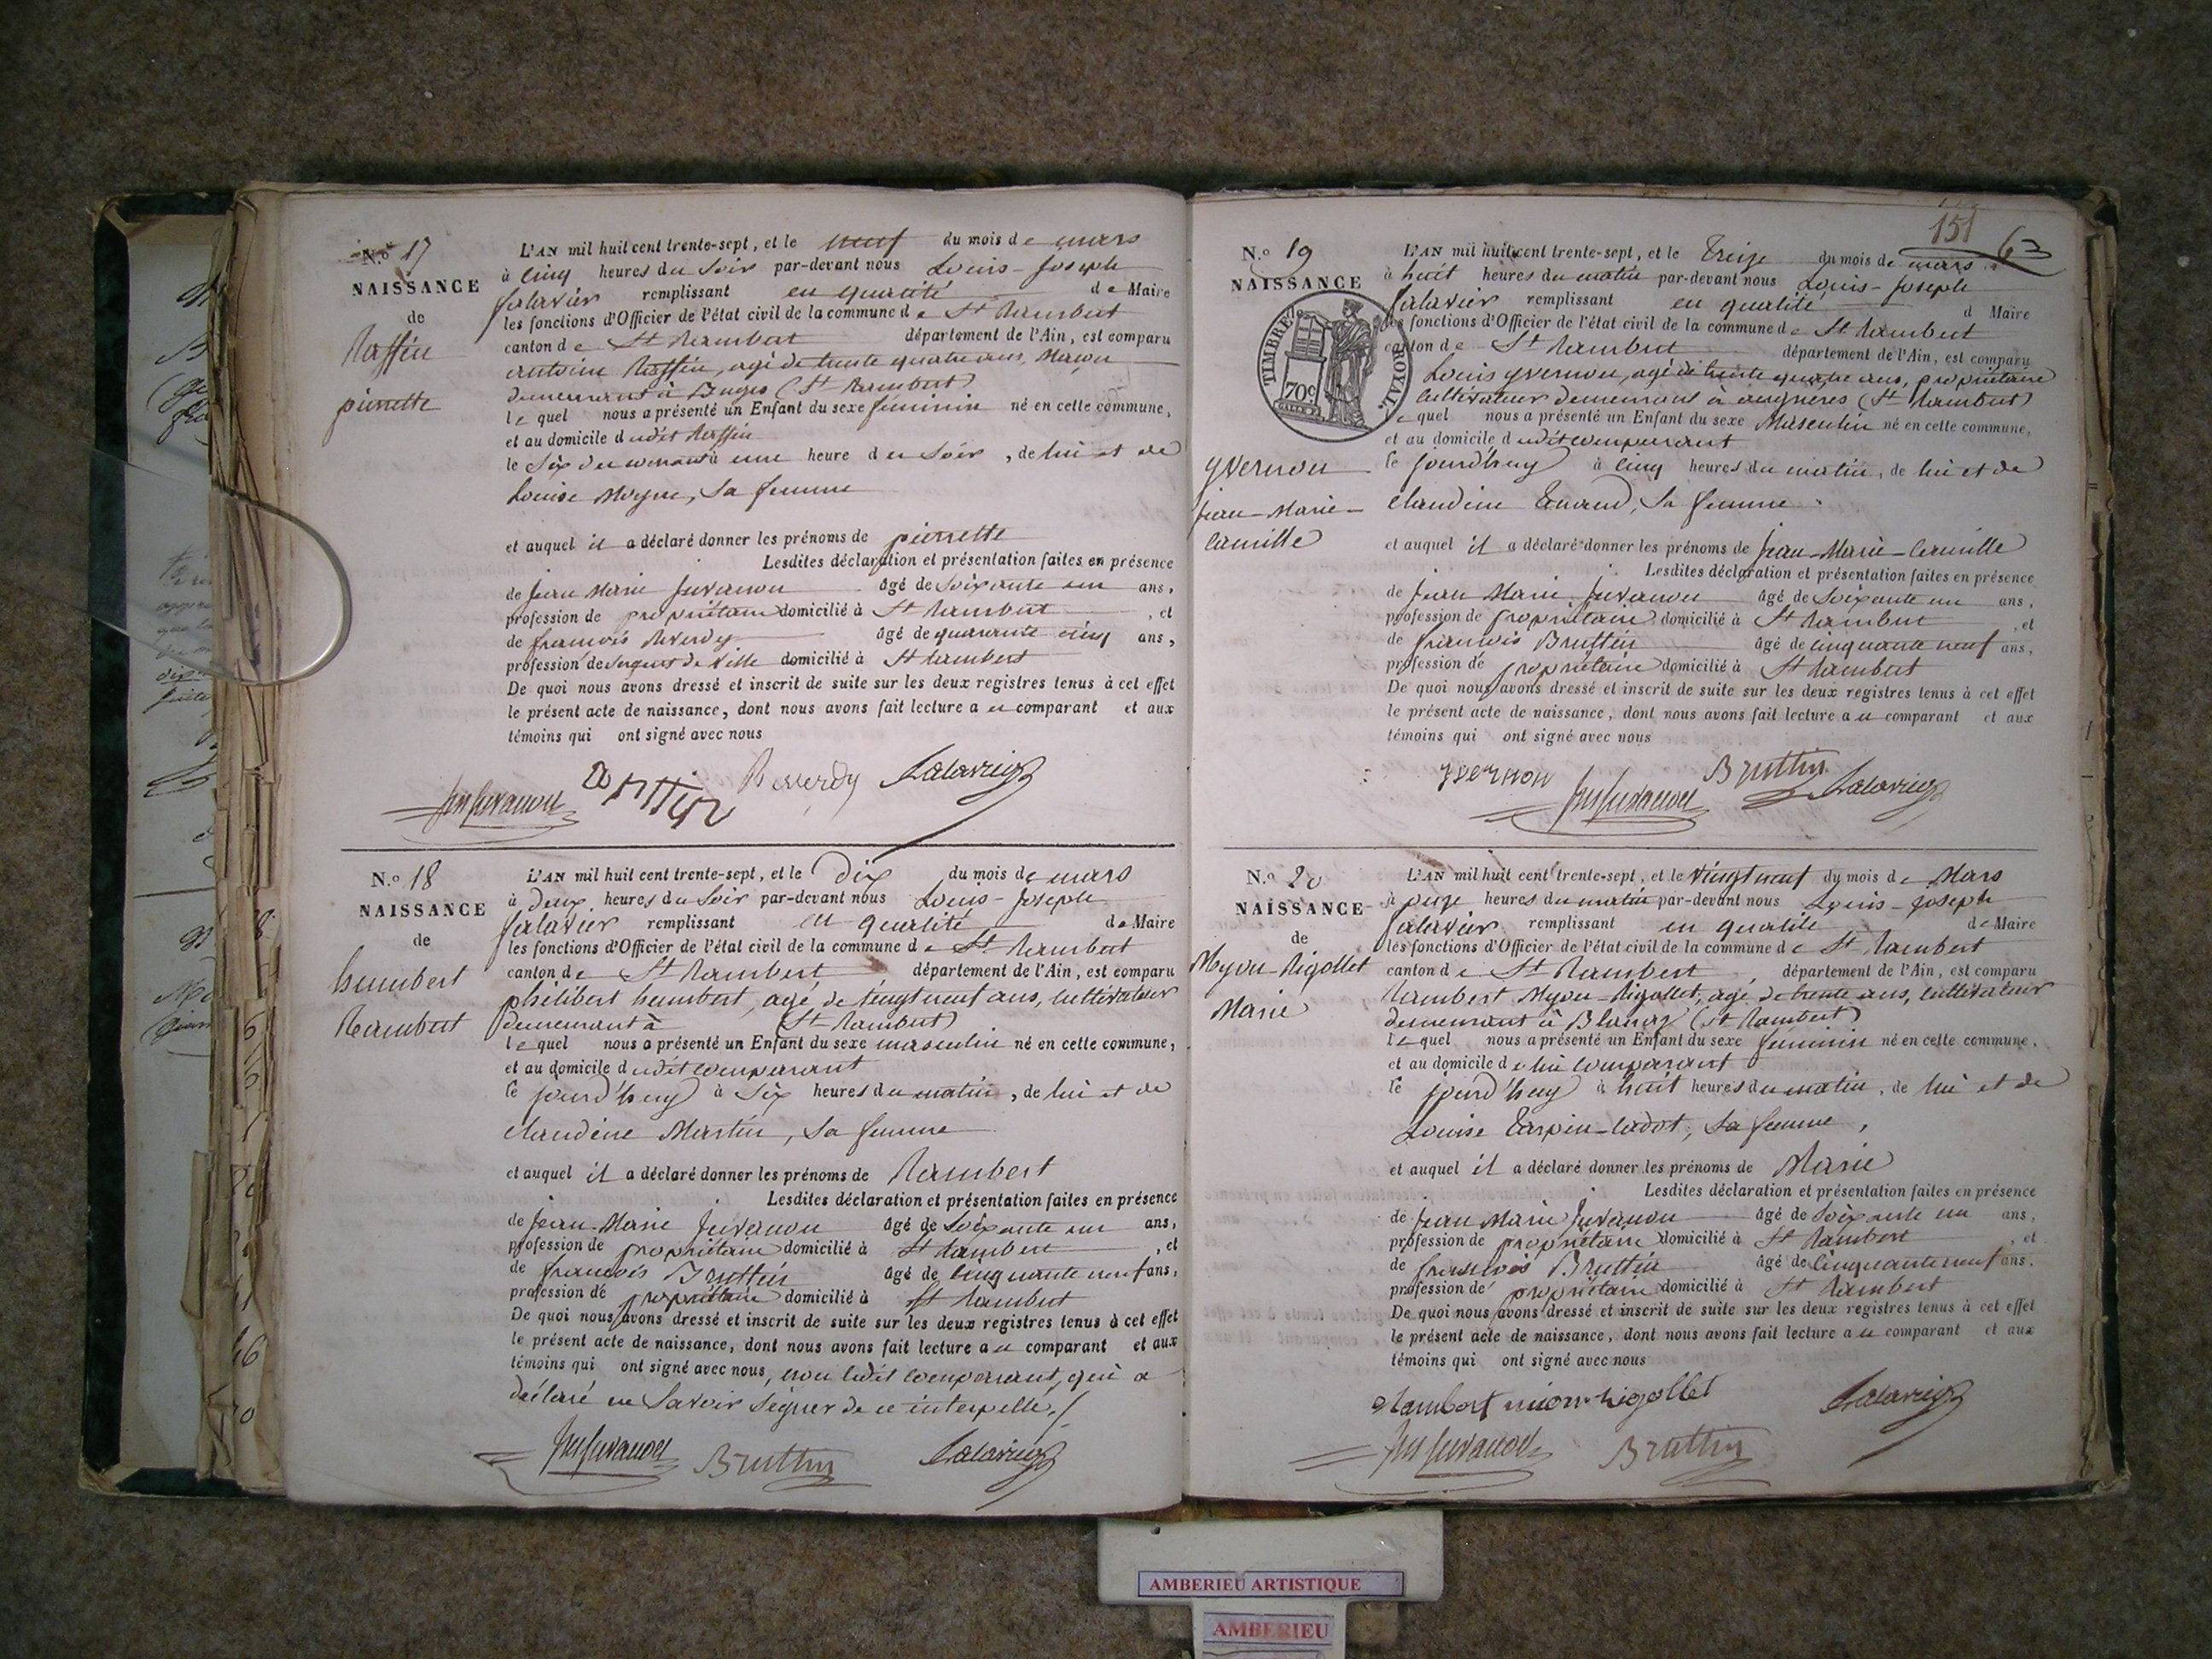 N.o 17
NAISSANCE
de
Raffin
pierrette
L'AN mil huit cent trente-sept, et le neuf du mois de mars
à cinq heures du soir par-devant nous Louis-Joseph
Salavier remplissant en qualité de Maire
les fonctions d'Officier de l'état civil de la commune de St Rambert
canton de St Rambert département de l'Ain, est comparu
antoine Raffin, agé de trente quatre ans, Maçon
demeurant à Buges (St Rambert)
lequel nous a présenté un Enfant du sexe féminin né en cette commune,
et au domicile dudit Raffin
le six du courant à une heure du soir, de lui et de
Louise Moyne, sa femme
et auquel il a déclaré donner les prénoms de pierrette
Lesdites déclaration et présentation faites en présence
de Jean Marie Juvanon âgé de soixante un ans,
profession de propriétaire domicilié à St Rambert, et
de françois Reverdy âgé de quarante cinq ans,
profession de sergent de ville domicilié à St Rambert
De quoi nous avons dressé et inscrit de suite sur les deux registres tenus à cet effet
le présent acte de naissance, dont nous avons fait lecture au comparant et aux
témoins qui ont signé avec nous
Juvanon Raffin Reverdy Salavier
N.o 18
NAISSANCE
de
humbert
Rambert
L'AN mil huit cent trente-sept, et le dix du mois de mars
à deux heures du soir par-devant nous Louis-Joseph
Salavier remplissant en qualité de Maire
les fonctions d'Officier de l'état civil de la commune de St Rambert
canton de St Rambert département de l'Ain, est comparu
philibert humbert, agé de vingt neuf ans, cultivateur
demeurant à (St Rambert)
lequel nous a présenté un Enfant du sexe masculin né en cette commune,
et au domicile dudit comparant
le jourd'huy à six heures du matin, de lui et de
claudine Martin, sa femme
et auquel il a déclaré donner les prénoms de Rambert
Lesdites déclaration et présentation faites en présence
de Jean-Marie Juvanon âgé de soixante un ans,
profession de propriétaire domicilié à St Rambert, et
de françois Bruttin âgé de cinquante neuf ans,
profession de propriétaire domicilié à St Rambert
De quoi nous avons dressé et inscrit de suite sur les deux registres tenus à cet effet
le présent acte de naissance, dont nous avons fait lecture au comparant et aux
témoins qui ont signé avec nous, non ledit comparant, qui a
déclaré ne savoir signer de ce interpellé./.
Juvanon Bruttin Salavier
151
63
N.o 19
NAISSANCE
TIMBRE ROYAL.
70c
yvernon
jean-Marie-
camille
L'AN mil huit cent trente-sept, et le treize du mois de mars
à huit heures du matin par-devant nous Louis-Joseph
Salavier remplissant en qualité d Maire
les fonctions d'Officier de l'état civil de la commune de St Rambert
canton de St Rambert département de l'Ain, est comparu
Louis yvernon, agé de trente quatre ans, propriétaire
cultivateur demeurant à angrières (St Rambert)
lequel nous a présenté un Enfant du sexe Masculin né en cette commune,
et au domicile dudit comparant
le jourd'huy à cinq heures du matin, de lui et de
claudine Tenand, sa femme
et auquel il a déclaré donner les prénoms de jean-Marie-Camille
Lesdites déclaration et présentation faites en présence
de Jean Marie Juvanon âgé de soixante un ans,
profession de propriétaire domicilié à St Rambert, et
de françois Bruttin âgé de cinquante neuf ans,
profession de propriétaire domicilié à St Rambert
De quoi nous avons dressé et inscrit de suite sur les deux registres tenus à cet effet
le présent acte de naissance, dont nous avons fait lecture au comparant et aux
témoins qui ont signé avec nous
yvernon Juvanon Bruttin Salavier
N.o 20
NAISSANCE
de
Myon-Rigollet
Marie
L'AN mil huit cent trente-sept, et le vingt neuf du mois de Mars
à onze heures du matin par-devant nous Louis-Joseph
Salavier remplissant en qualité de Maire
les fonctions d'Officier de l'état civil de la commune de St Rambert
canton de St Rambert, département de l'Ain, est comparu
Rambert Myon-Rigollet, agé de trente ans, cultivateur
demeurant à Blanaz (St Rambert)
lequel nous a présenté un Enfant du sexe féminin né en cette commune,
et au domicile de lui comparant
le jourd'huy à huit heures du matin, de lui et de
Louise Tarpin-Cadot, sa femme,
et auquel il a déclaré donner les prénoms de Marie
Lesdites déclaration et présentation faites en présence
de Jean Marie Juvanon âgé de soixante un ans,
profession de propriétaire domicilié à St Rambert, et
de françois Bruttin âgé de cinquante neuf ans,
profession de propriétaire domicilié à St Rambert
De quoi nous avons dressé et inscrit de suite sur les deux registres tenus à cet effet
le présent acte de naissance, dont nous avons fait lecture au comparant et aux
témoins qui ont signé avec nous
Rambert mion-Rigollet Salavier
Juvanon Bruttin
AMBERIEU ARTISTIQUE
AMBERIEU